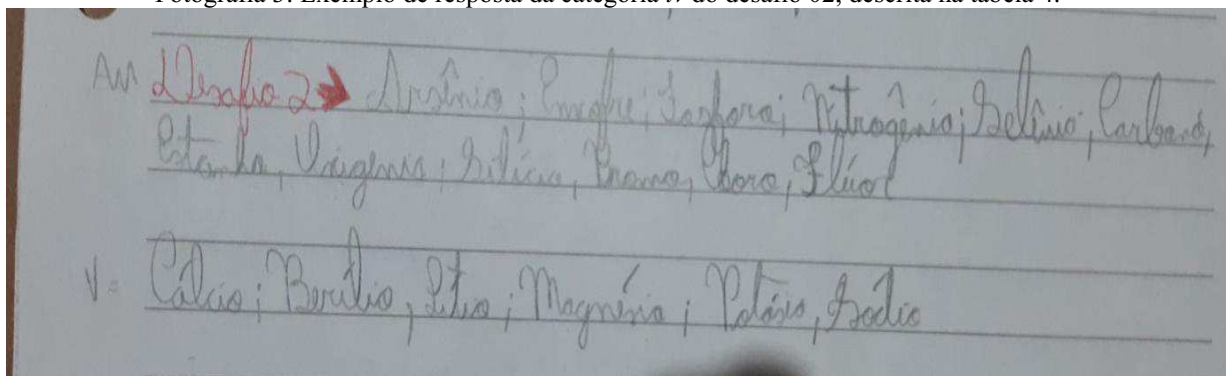 Fotografia 3: Exemplo de resposta da categoria i7 do desafio 02, descrita na tabela 4.
AM Desafio 2 → Arsênio; Enxofre; Fosforo; Nitrogênio; Selênio, Carbono,
Estanho, Oxigenio; Silício, Bromo, Cloro, Flúor
V= Cálcio; Berílio, Lítio; Magnésio; Potásio, Sódio